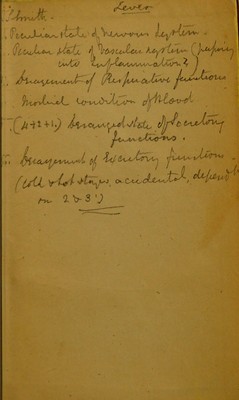 Fever
Peculiar state of Nervous System.
Peculiar state of Vascular System (
into Inflammation?)
Derangement of Respirative functions
Morbid condition of Blood
(4+2+1,) Deranged state of Secretory
functions.
Derangement of Excretory functions.
(cold & hot stages, accidental, depend
on 2 & 3?)